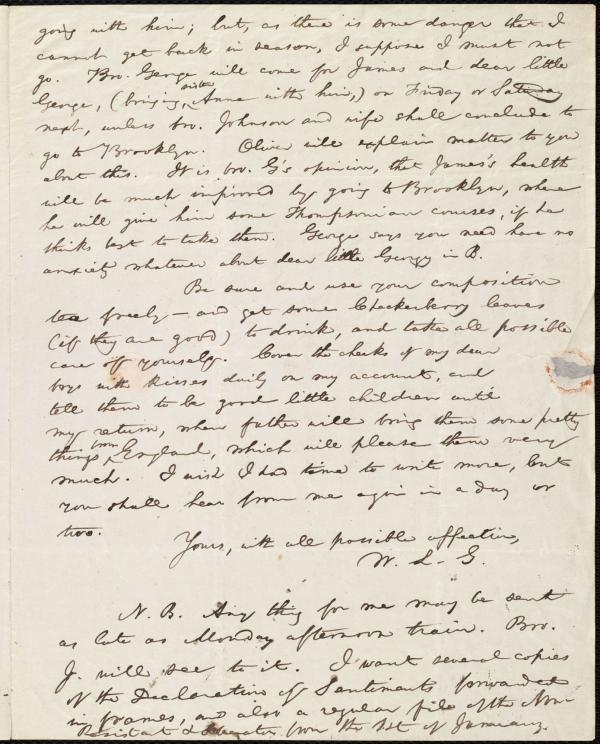 going with him; but, as there is some danger that I
cannot get back in season, I suppose I must not
go. Bro. George will come for James and dear little
George, (bringing sister Anna with him,) on Friday or Saturday
next, unless bro. Johnson and wife shall conclude to
go to Brooklyn. Oliver will explain matter to you
about this. It is bro. G's opinion, that James's health
will be much improved by going to Brooklyn, where
he will give him some Thompsonian courses, if he
thinks best to take them. George says you need have no
anxiety whatever about dear little Georgy in B.
Be sure and use your composition
tea freely — and get some Checkerberry leaves
(if they are good) to drink, and take all possible
care of yourself. Cover the cheeks of my dear
boys with kisses daily on my account, and
tell them to be good little children until
my return, when father will bring them some pretty
things from England, which will please them very
much. I wish I had time to write more, but
you shall hear from me again in a day or
two.
Yours, with all possible affection,
W. L. G.
N. B. Any thing for me may be sent
as late as Monday afternoon train. Bro.
J. will see to it. I want several copies
of the Declaration of Sentiments forwarded
in frames, and also a regular file of the Non-
Resistant & Liberator from the 1st of January.